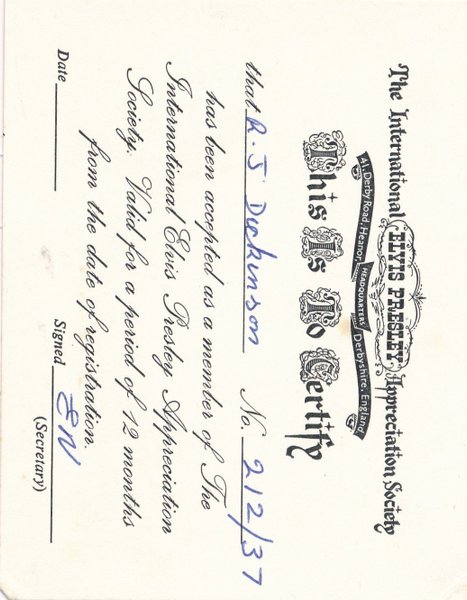 The International ELVIS PRESLEY Appreciation Society
41, Derby Road, Heanor, HEADQUARTERS Derbyshire, England
This Is To Certify
that R. J Dickinson No. 212/37
has been accepted as a member of The
International Elvis Presley Appreciation
Society. Valid for a period of 12 months
from the date of registration.
Date Signed EN
(Secretary)